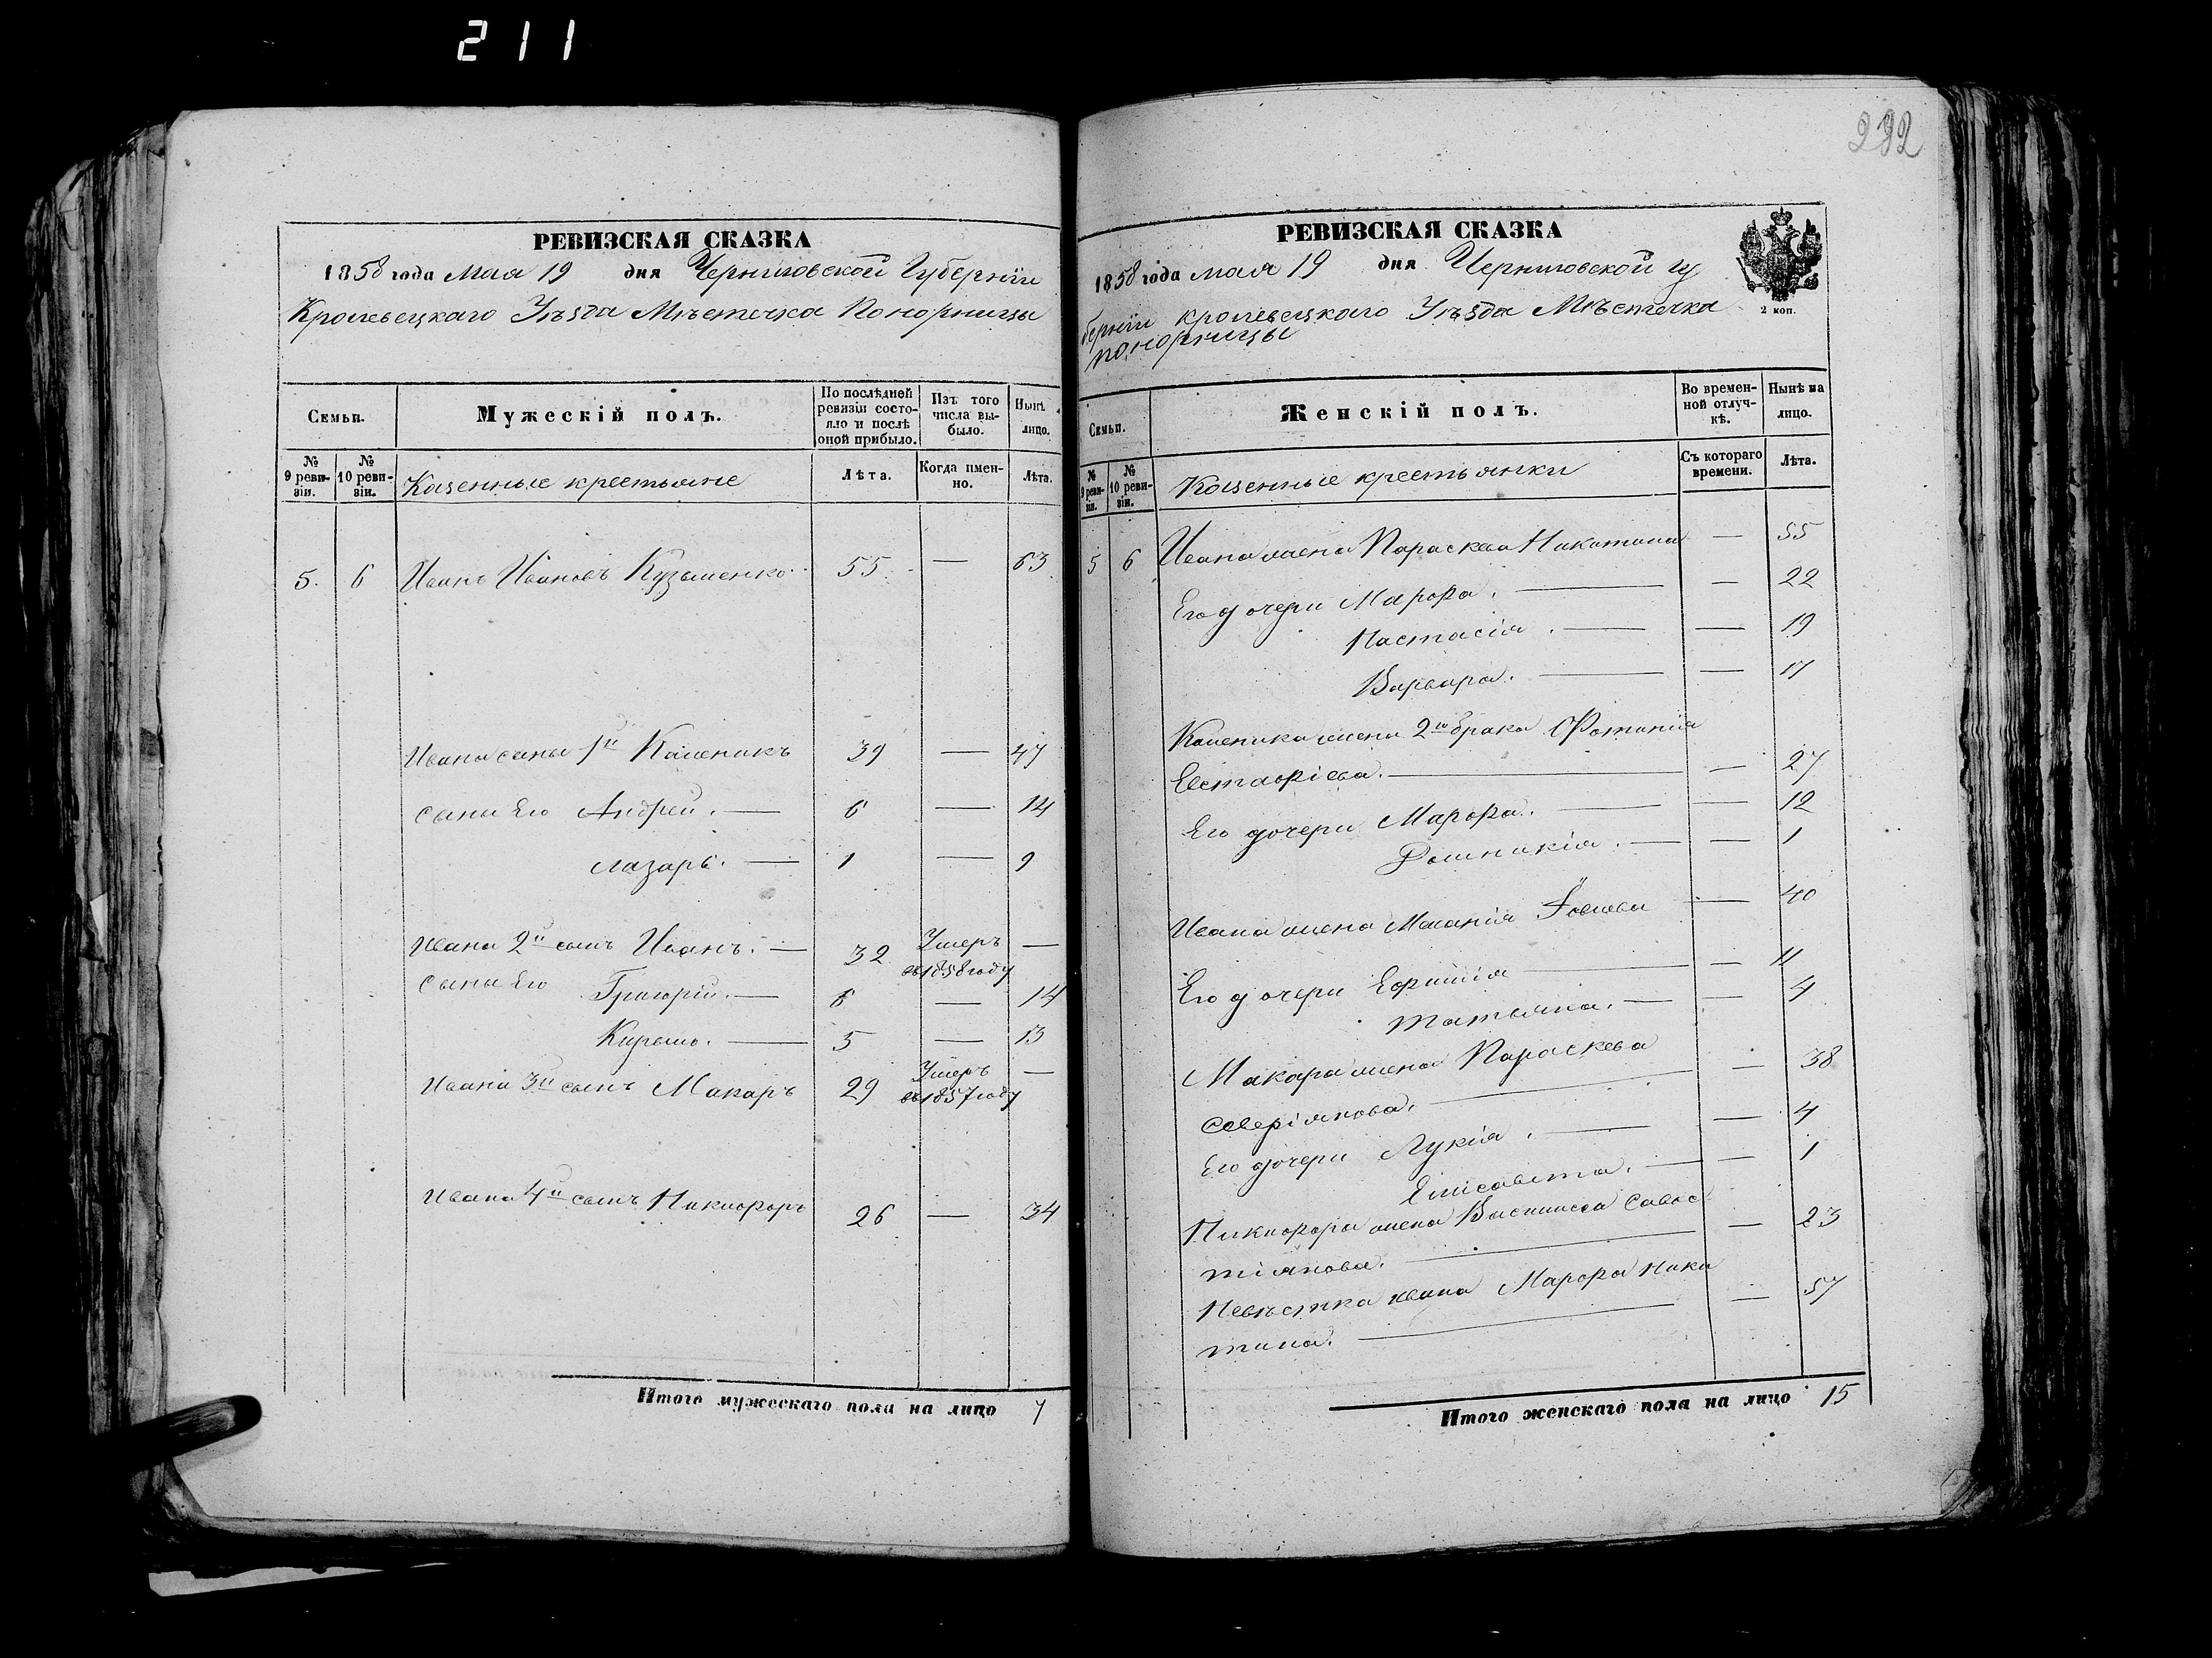 211
РЕВИЗСКАЯ СКАЗКА
1858 года Мая 19 дня Черниговской Губернiи
Кролевецкаго Уѣзда Мѣстечка Понорницы
Семьи.
Мужескiй полъ.
По послѣдней ревизiи состояло и послѣ оной прибыло.
Изъ того числа выбыло.
Нынѣ лицо.
№ 9 ревизiи.
№ 10 ревизiи.
Казенные крестьяне
Лѣта.
Когда именно.
Лѣта.
5. 6 Иванъ Ивановъ Кузьменко 55 — 63
Ивана сыны 1й Каленикъ 39 — 47
сыны Его Андрей. — 6 — 14
Лазарь. — 1 — 9
Ивана 2й сынъ Иванъ. — 32 Умеръ въ 1858 году —
Сыны Его Григорiй. — 6 — 14
Кирыло. — 5 — 13
Ивана 3й сынъ Макаръ 29 Умеръ въ 1857 году —
Ивана 4й сынъ Никифоръ 26 — 34
Итого мужескаго пола на лицо 7
232
РЕВИЗСКАЯ СКАЗКА
1858 года мая 19 дня Черниговской гу
бернiи кролевецкаго Уѣзда Мѣстечка
понорницы
2 коп.
Семьи.
Женскiй полъ.
Во временной отлучкѣ.
Нынѣ на лицо.
№ 9 ревизiи.
№ 10 ревизiи.
Казенные крестьянки
Съ котораго времени.
Лѣта.
5 6 Ивана жена Параскева Никитина — 55
Его дочери Марфа. — — 22
Настасiя. — — 19
Варвара. — — 17
Каленика жена 2го брака Фотинiя
Евстафiева. — — 27
Его дочери Марфа. — — 12
Домникiя. — — 1
Ивана жена Меланiя — 40
Его дочери Ефимiя — — 11
татьяна. — — 4
Макара жена Параскева
Северiянова. — — 38
Его дочери Лукiя. — — 4
Елисавета. — — 1
Никифора жена Василиса Савос
тiянова. — — 23
Невѣстка Ивана Марфа Ники
тина. — — 57
Итого женскаго пола на лицо 15